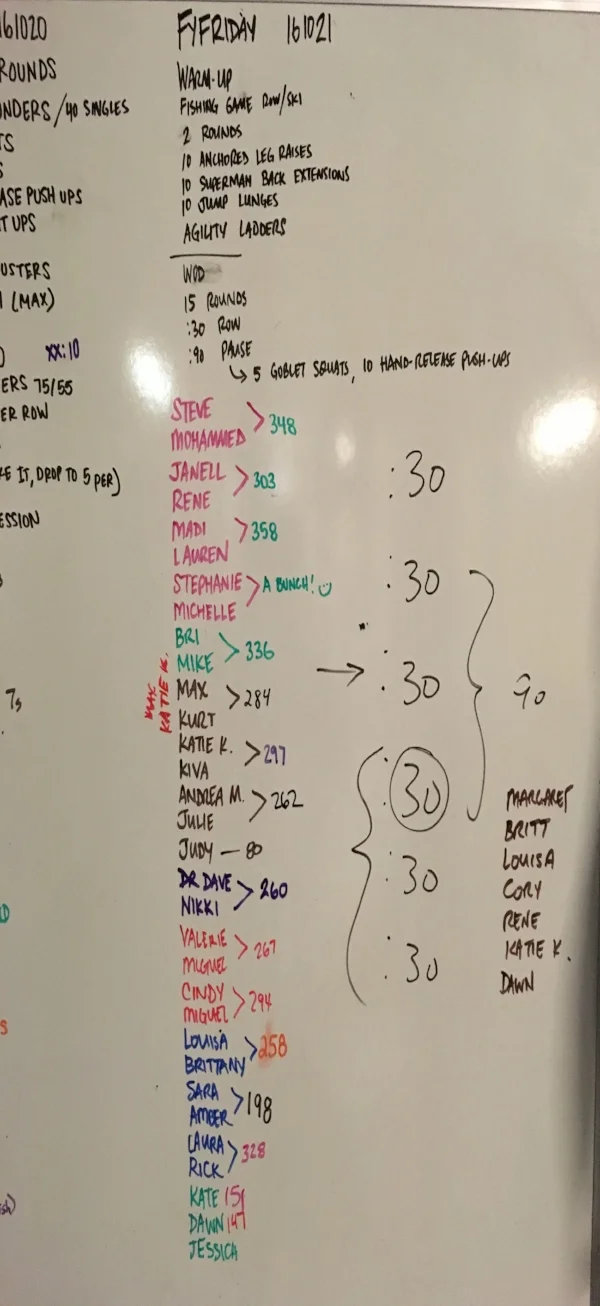 161020
ROUNDS
UNDERS/40 SINGLES
TS
S
ASE PUSH UPS
T UPS
USTERS
(MAX)
XX:10
ERS 75/55
ER ROW
KE IT, DROP TO 5 PER)
ESSION
7s
FYFRIDAY 161021
WARM-UP
FISHING GAME ROW/SKI
2 ROUNDS
10 ANCHORED LEG RAISES
10 SUPERMAN BACK EXTENSIONS
10 JUMP LUNGES
AGILITY LADDERS
WOD
15 ROUNDS
:30 ROW
:90 PAUSE
↳ 5 GOBLET SQUATS, 10 HAND-RELEASE PUSH-UPS
STEVE
MOHAMMED > 348
JANELL
RENE > 303
MADI
LAUREN > 358
STEPHANIE
MICHELLE > A BUNCH! ☺
BRI
MIKE > 336
MAX
KURT > 284
MAX
KATIE K.
KATIE K.
KIVA > 297
ANDREA M.
JULIE > 262
JUDY — 80
DR DAVE
NIKKI > 260
VALERIE
MIGUEL > 267
CINDY
MIGUEL > 294
LOUISA
BRITTANY > 258
SARA
AMBER > 198
LAURA
RICK > 328
KATE 151
DAWN 147
JESSICA
:30
:30
→ :30
:30
:30
:30
90
MARGARET
BRITT
LOUISA
CORY
RENE
KATIE K.
DAWN